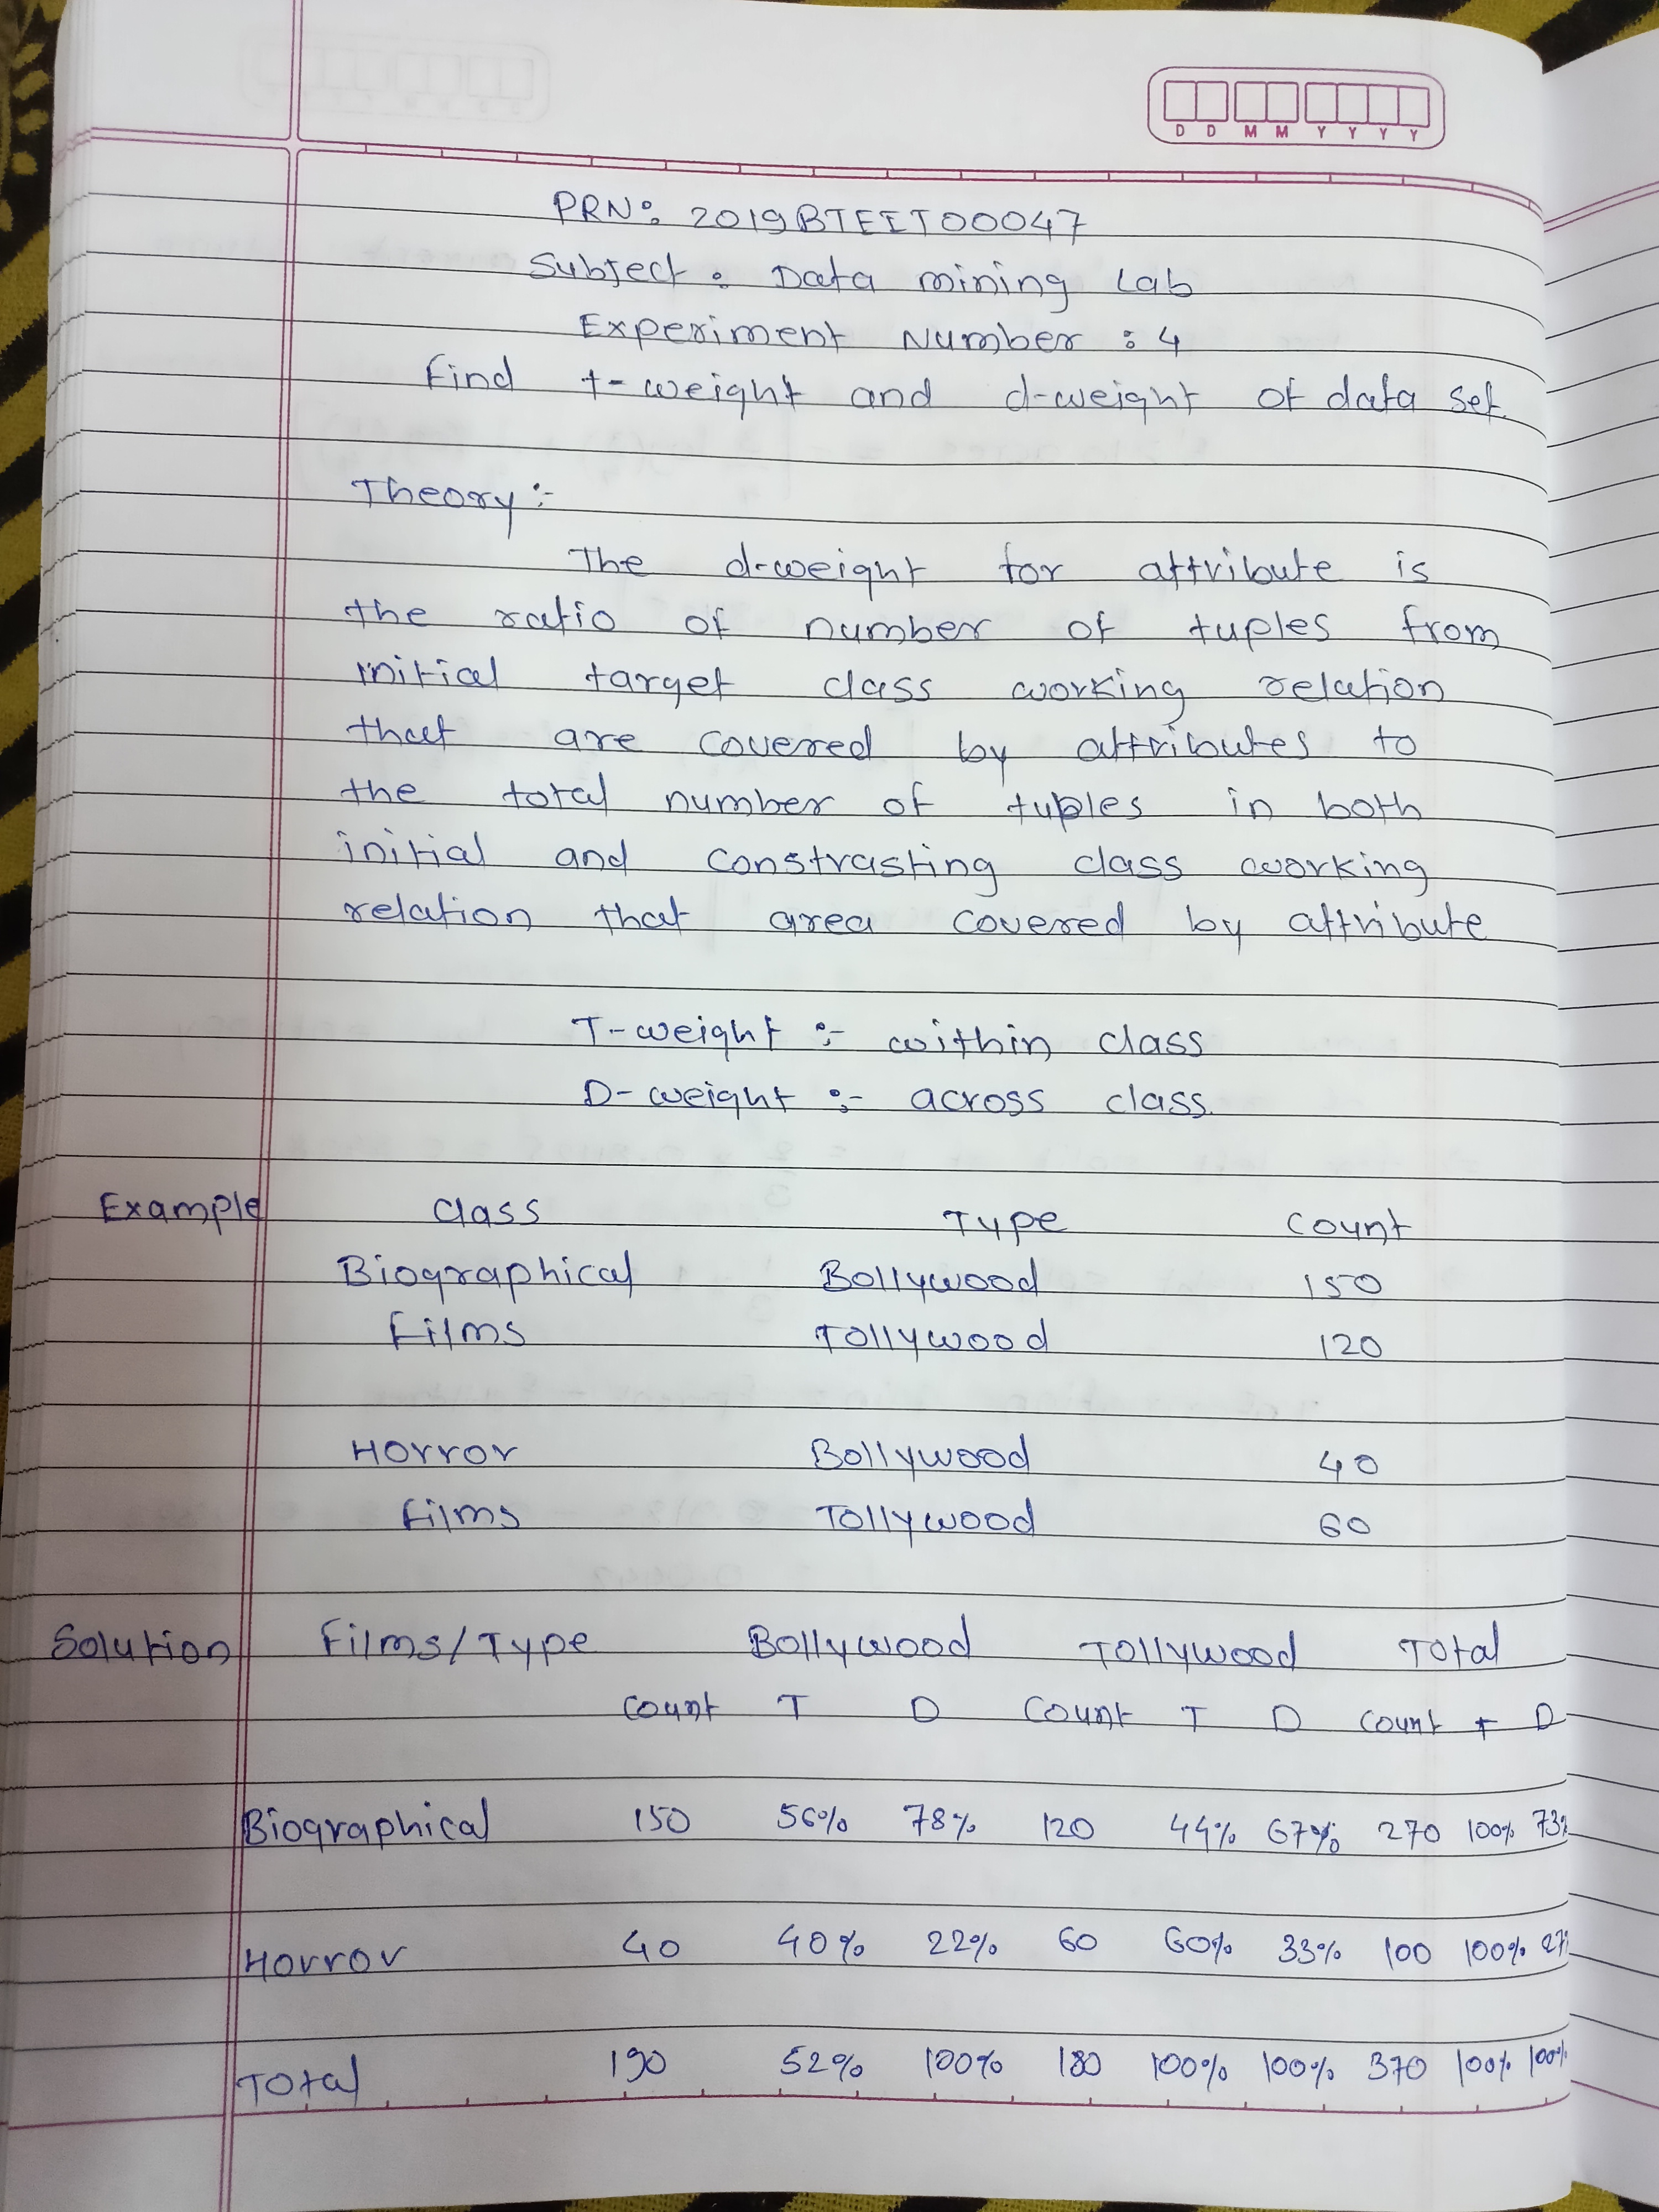 D D M M Y Y Y Y
PRN: 2019BTEIT00047
Subject: Data mining Lab
Experiment Number : 4
Find t-weight and d-weight of data set.
Theory :-
The d-weight for attribute is
the ratio of number of tuples from
initial target class working relation
that are covered by attributes to
the total number of tuples in both
initial and constrasting class working
relation that area covered by attribute
T-weight :- within class
D-weight :- across class.
Example Class Type Count
Biographical Bollywood 150
Films Tollywood 120
Horror Bollywood 40
Films Tollywood 60
Solution Films/Type Bollywood Tollywood Total
Count T D Count T D Count T D
Biographical 150 56% 78% 120 44% 67% 270 100% 73%
Horror 40 40% 22% 60 60% 33% 100 100% 27%
Total 190 52% 100% 180 100% 100% 370 100% 100%